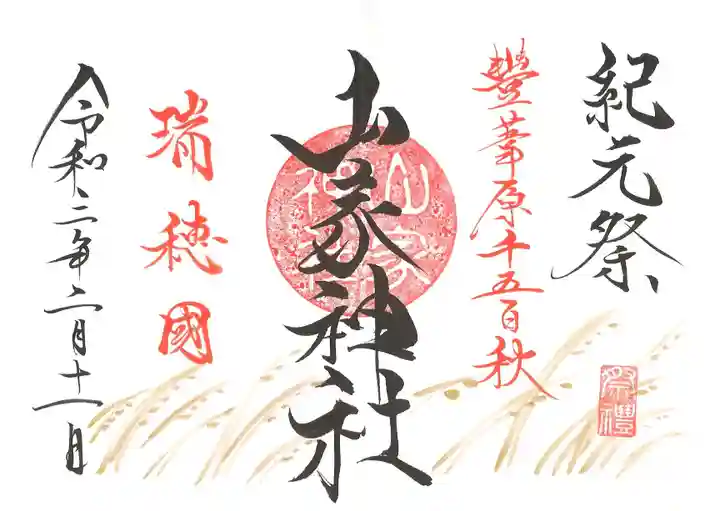 紀元祭
祭禮
豐葦原千五百秋
山家神社
山家神社
瑞穂國
令和二年二月十一日